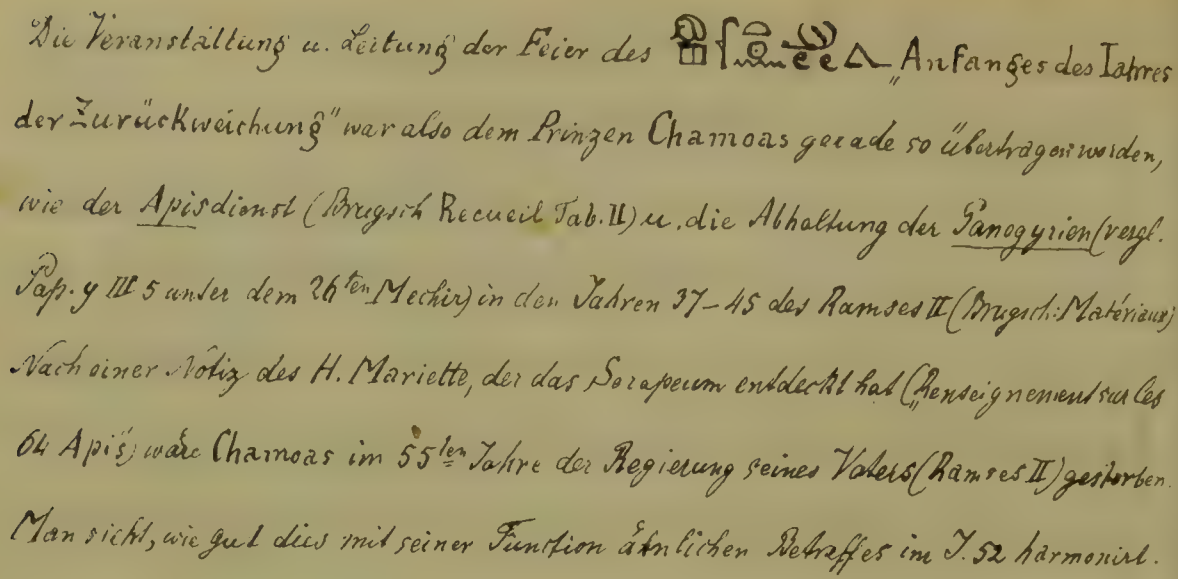 Die Veranstaltung u. Leitung der Feier des „Anfanges des Iahres
der Zurückweichung" war also dem Prinzen Chamoas gerade so übertragen worden,
wie der Apisdienst (Brugsch Recueil Tab. II) u. die Abhaltung der Panegyrien (vergl.
Pap. y III 5 unter dem 26ten Mechir) in den Jahren 37–45 des Ramses II (Brugsch: Matériaux)
Nach einer Notiz des H. Mariette, der das Serapeum entdeckt hat („Renseignement sur les
64 Apis") wäre Chamoas im 55ten Jahre der Regierung seines Vaters (Ramses II) gestorben.
Man sieht, wie gut dies mit seiner Function ähnlichen Betreffes im J. 52 harmonirt.